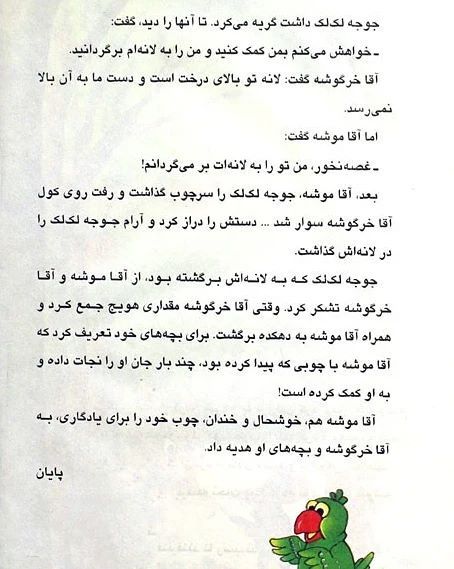 جوجه لک‌لک داشت گریه می‌کرد. تا آنها را دید، گفت:
ـ خواهش می‌کنم بمن کمک کنید و من را به لانه‌ام برگردانید.
آقا خرگوشه گفت: لانه تو بالای درخت است و دست ما به آن بالا
نمی‌رسد.
اما آقا موشه گفت:
ـ غصه‌نخور، من تو را به لانه‌ات بر می‌گردانم!
بعد، آقا موشه، جوجه لک‌لک را سرچوب گذاشت و رفت روی کول
آقا خرگوشه سوار شد ... دستش را دراز کرد و آرام جوجه لک‌لک را
در لانه‌اش گذاشت.
جوجه لک‌لک که به لانه‌اش برگشته بود، از آقا موشه و آقا
خرگوشه تشکر کرد. وقتی آقا خرگوشه مقداری هویج جمع کرد و
همراه آقا موشه به دهکده برگشت. برای بچه‌های خود تعریف کرد که
آقا موشه با چوبی که پیدا کرده بود، چند بار جان او را نجات داده و
به او کمک کرده است!
آقا موشه هم، خوشحال و خندان، چوب خود را برای یادگاری، به
آقا خرگوشه و بچه‌های او هدیه داد.
پایان